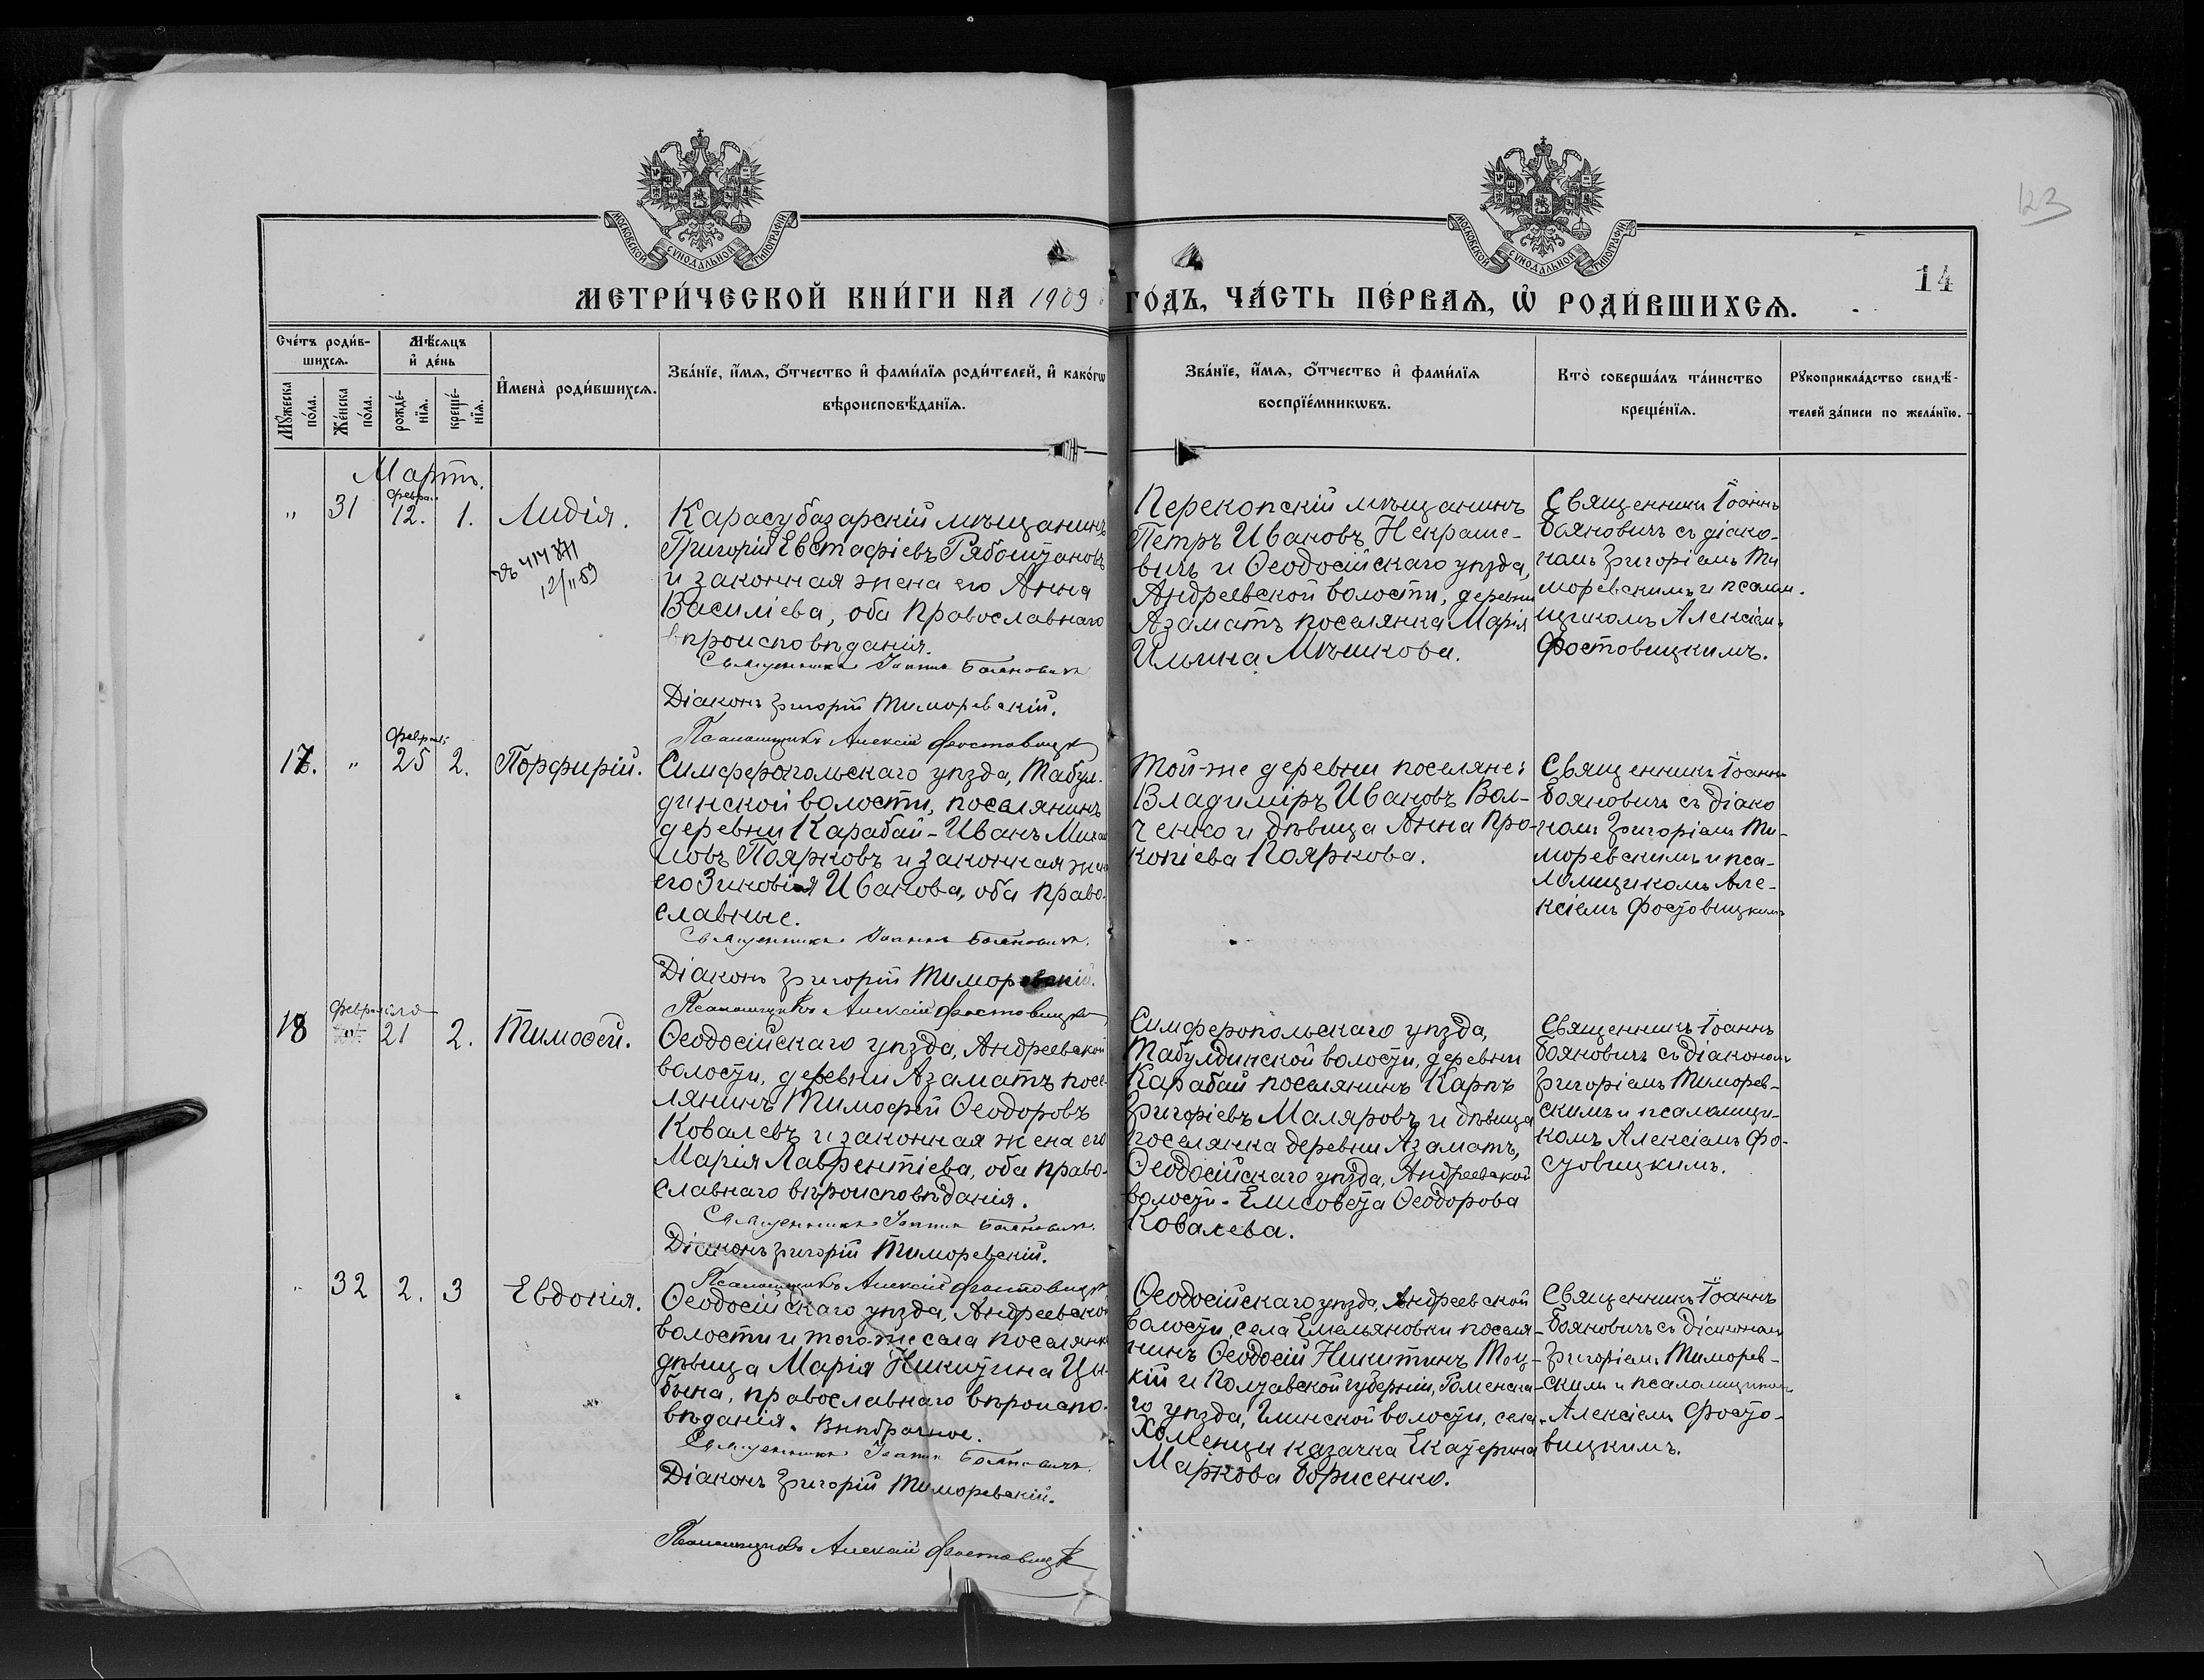 123
14
МОСКОВСКОЙ СѴНОДАЛЬНОЙ ТИПОГРАФІИ
МОСКОВСКОЙ СѴНОДАЛЬНОЙ ТИПОГРАФІИ
МЕТРИ́ЧЕСКОЙ КНИ́ГИ НА 1909 ГО́ДЪ, ЧА́СТЬ ПЕ́РВАѦ, Ѡ҆ РОДИ́ВШИХСѦ.
Сче́тъ роди́в-
шихсѧ.
Мꙋ́жеска по́ла.
Же́нска по́ла.
Мѣ́сѧцъ
и҆ де́нь
рожде́-нїѧ.
креще́-нїѧ.
И҆мена̀ роди́вшихсѧ.
Зва́нїе, и҆́мѧ, ѻ҆́тчество и҆ фами́лїѧ роди́телей, и҆ како́гѡ
вѣроисповѣ́данїѧ.
Зва́нїе, и҆́мѧ, ѻ҆́тчество и҆ фами́лїѧ
воспрїе́мникѡвъ.
Кто̀ соверша́лъ та́инство
креще́нїѧ.
Рꙋкоприкла́дство свидѣ́-
телей за́писи по жела́нїю.
Мартъ.
" 31 Февра. 12. 1. Лидія.
12/II 09
Карасубазарскій мѣщанинъ
Григорій Евстафіевъ Рябоштановъ
и законная жена его Анна
Василіева, оба православнаго
вѣроисповѣданія.
Священникъ Іоаннъ Бояновичъ
Діаконъ Григорій Тиморевскій.
Псаломщикъ Алексій Фостовицк
Перекопскій мѣщанинъ
Петръ Ивановъ Некраше-
вичъ и Ѳеодосійскаго уѣзда,
Андреевской волости, деревни
Азаматъ поселянка Марія
Ильина Мѣшкова.
Священникъ Іоаннъ
Бояновичъ съ діако-
номъ Григоріемъ Ти
моревскимъ и псалом-
щикомъ Алексіемъ
Фостовицкимъ.
17. " Февраль 25 2. Порфирій.
Симферопольскаго уѣзда, Табул-
динской волости, поселянинъ
деревни Карабай - Иванъ Михаи
ловъ Поярковъ и законная жена
его Зиновія Иванова, оба право-
славные.
Священникъ Іоаннъ Бояновичъ.
Діаконъ Григорій Тиморевскій.
Псаломщикъ Алексій Фостовицк
Той-же деревни поселяне:
Владиміръ Ивановъ Вол-
ченко и дѣвица Анна Про-
копіева Пояркова.
Священникъ Іоаннъ
Бояновичъ съ діако
номъ Григоріемъ Ти-
моревскимъ и пса-
ломщикомъ Але-
ксіемъ Фостовицкимъ
18 Февраля 21 2. Тимоѳей.
Ѳеодосійскаго уѣзда, Андреевской
волости, деревни Азаматъ посе-
лянинъ Тимофей Ѳеодоровъ
Ковалевъ и законная жена его
Марія Лаврентіева, оба право-
славнаго вѣроисповѣданія.
Священникъ Іоаннъ Бояновичъ.
Діаконъ Григорій Тиморевскій.
Псаломщикъ Алексій Фостовицк
Симферопольскаго уѣзда,
Табулдинской волости, деревни
Карабай поселянинъ Карпъ
Григоріевъ Маляровъ и дѣвица
поселянка деревни Азаматъ,
Ѳеодосійскаго уѣзда, Андреевской
волости - Елисовета Ѳеодорова
Ковалева.
Священникъ Іоаннъ
Бояновичъ съ діакономъ
Григоріемъ Тиморев-
скимъ и псаломщи-
комъ Алексіемъ Фо-
стовицкимъ.
" 32 2. 3 Евдокія.
Ѳеодосійскаго уѣзда, Андреевской
волости и того-же села поселянка
дѣвица Марія Никитина Цы-
бина, православнаго вѣроиспо-
вѣданія. Внѣбрачное.
Священникъ Іоаннъ Бояновичъ.
Діаконъ Григорій Тиморевскій.
Псаломщикъ Алексій Фостовицк
Ѳеодосійскаго уѣзда, Андреевской
волости, села Емельяновки поселя-
нинъ Ѳеодосій Никитинъ Тоц-
кій и Полтавской губерніи, Роменска-
го уѣзда, Глинской волости, села
Хоменцы казачка Екатерина
Маркова Борисенко.
Священникъ Іоаннъ
Бояновичъ съ діакономъ
Григоріемъ Тиморев-
скимъ и псаломщикомъ
Алексіемъ Фосто-
вицкимъ.